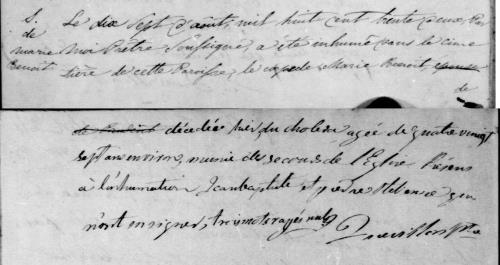 S.
de
marie
Benoit
Le dix Sept d'août, mil huit cent trente deux, Par
moi Prêtre Soussigné, a été inhumé dans le cime
tière de cette Paroisse, le corps de Marie Benoit,
de
décédée hier du cholera agée de quatre vingt
sept ans environ, munie de secours de l'Eglise Présens
à l'inhumation Jean baptiste et pierre qui
n'ont su signer, trois mots rayés nuls